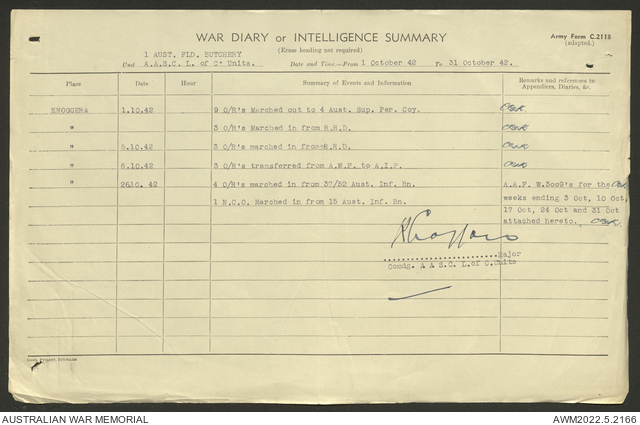 WAR DIARY or INTELLIGENCE SUMMARY
Army Form C.2118
(adapted.)
(Erase heading not required)
1 AUST. FLD. BUTCHERY
Unit A.A.S.C. L. of C. Units.
Date and Time—From 1 October 42 To 31 October 42.
Place Date Hour Summary of Events and Information Remarks and references to Appendices, Diaries, &c.
ENOGGERA 1.10.42 9 O/R's Marched out to 4 Aust. Sup. Per. Coy.
" 3 O/R's Marched in from R.R.D.
" 5.10.42 3 O/R's marched in from R.R.D.
" 6.10.42 3 O/R's transferred from A.M.F. to A.I.F.
" 26.10. 42 4 O/R's marched in from 37/52 Aust. Inf. Bn. A.A.F. W.3009's for the
1 N.C.O. Marched in from 15 Aust. Inf. Bn. weeks ending 3 Oct, 10 Oct,
17 Oct, 24 Oct and 31 Oct
attached hereto.
Major
Comdg. A A S.C. L. of C. Units
AUSTRALIAN WAR MEMORIAL
AWM2022.5.2166